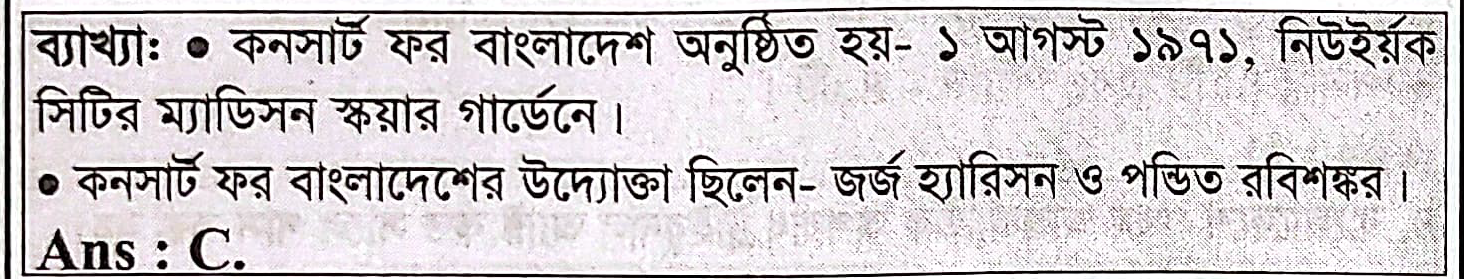 ব্যাখ্যা: ● কনসার্ট ফর বাংলাদেশ অনুষ্ঠিত হয়- ১ আগস্ট ১৯৭১, নিউইর্য়ক
সিটির ম্যাডিসন স্কয়ার গার্ডেনে।
● কনসার্ট ফর বাংলাদেশের উদ্যোক্তা ছিলেন- জর্জ হ্যারিসন ও পন্ডিত রবিশঙ্কর।
Ans : C.